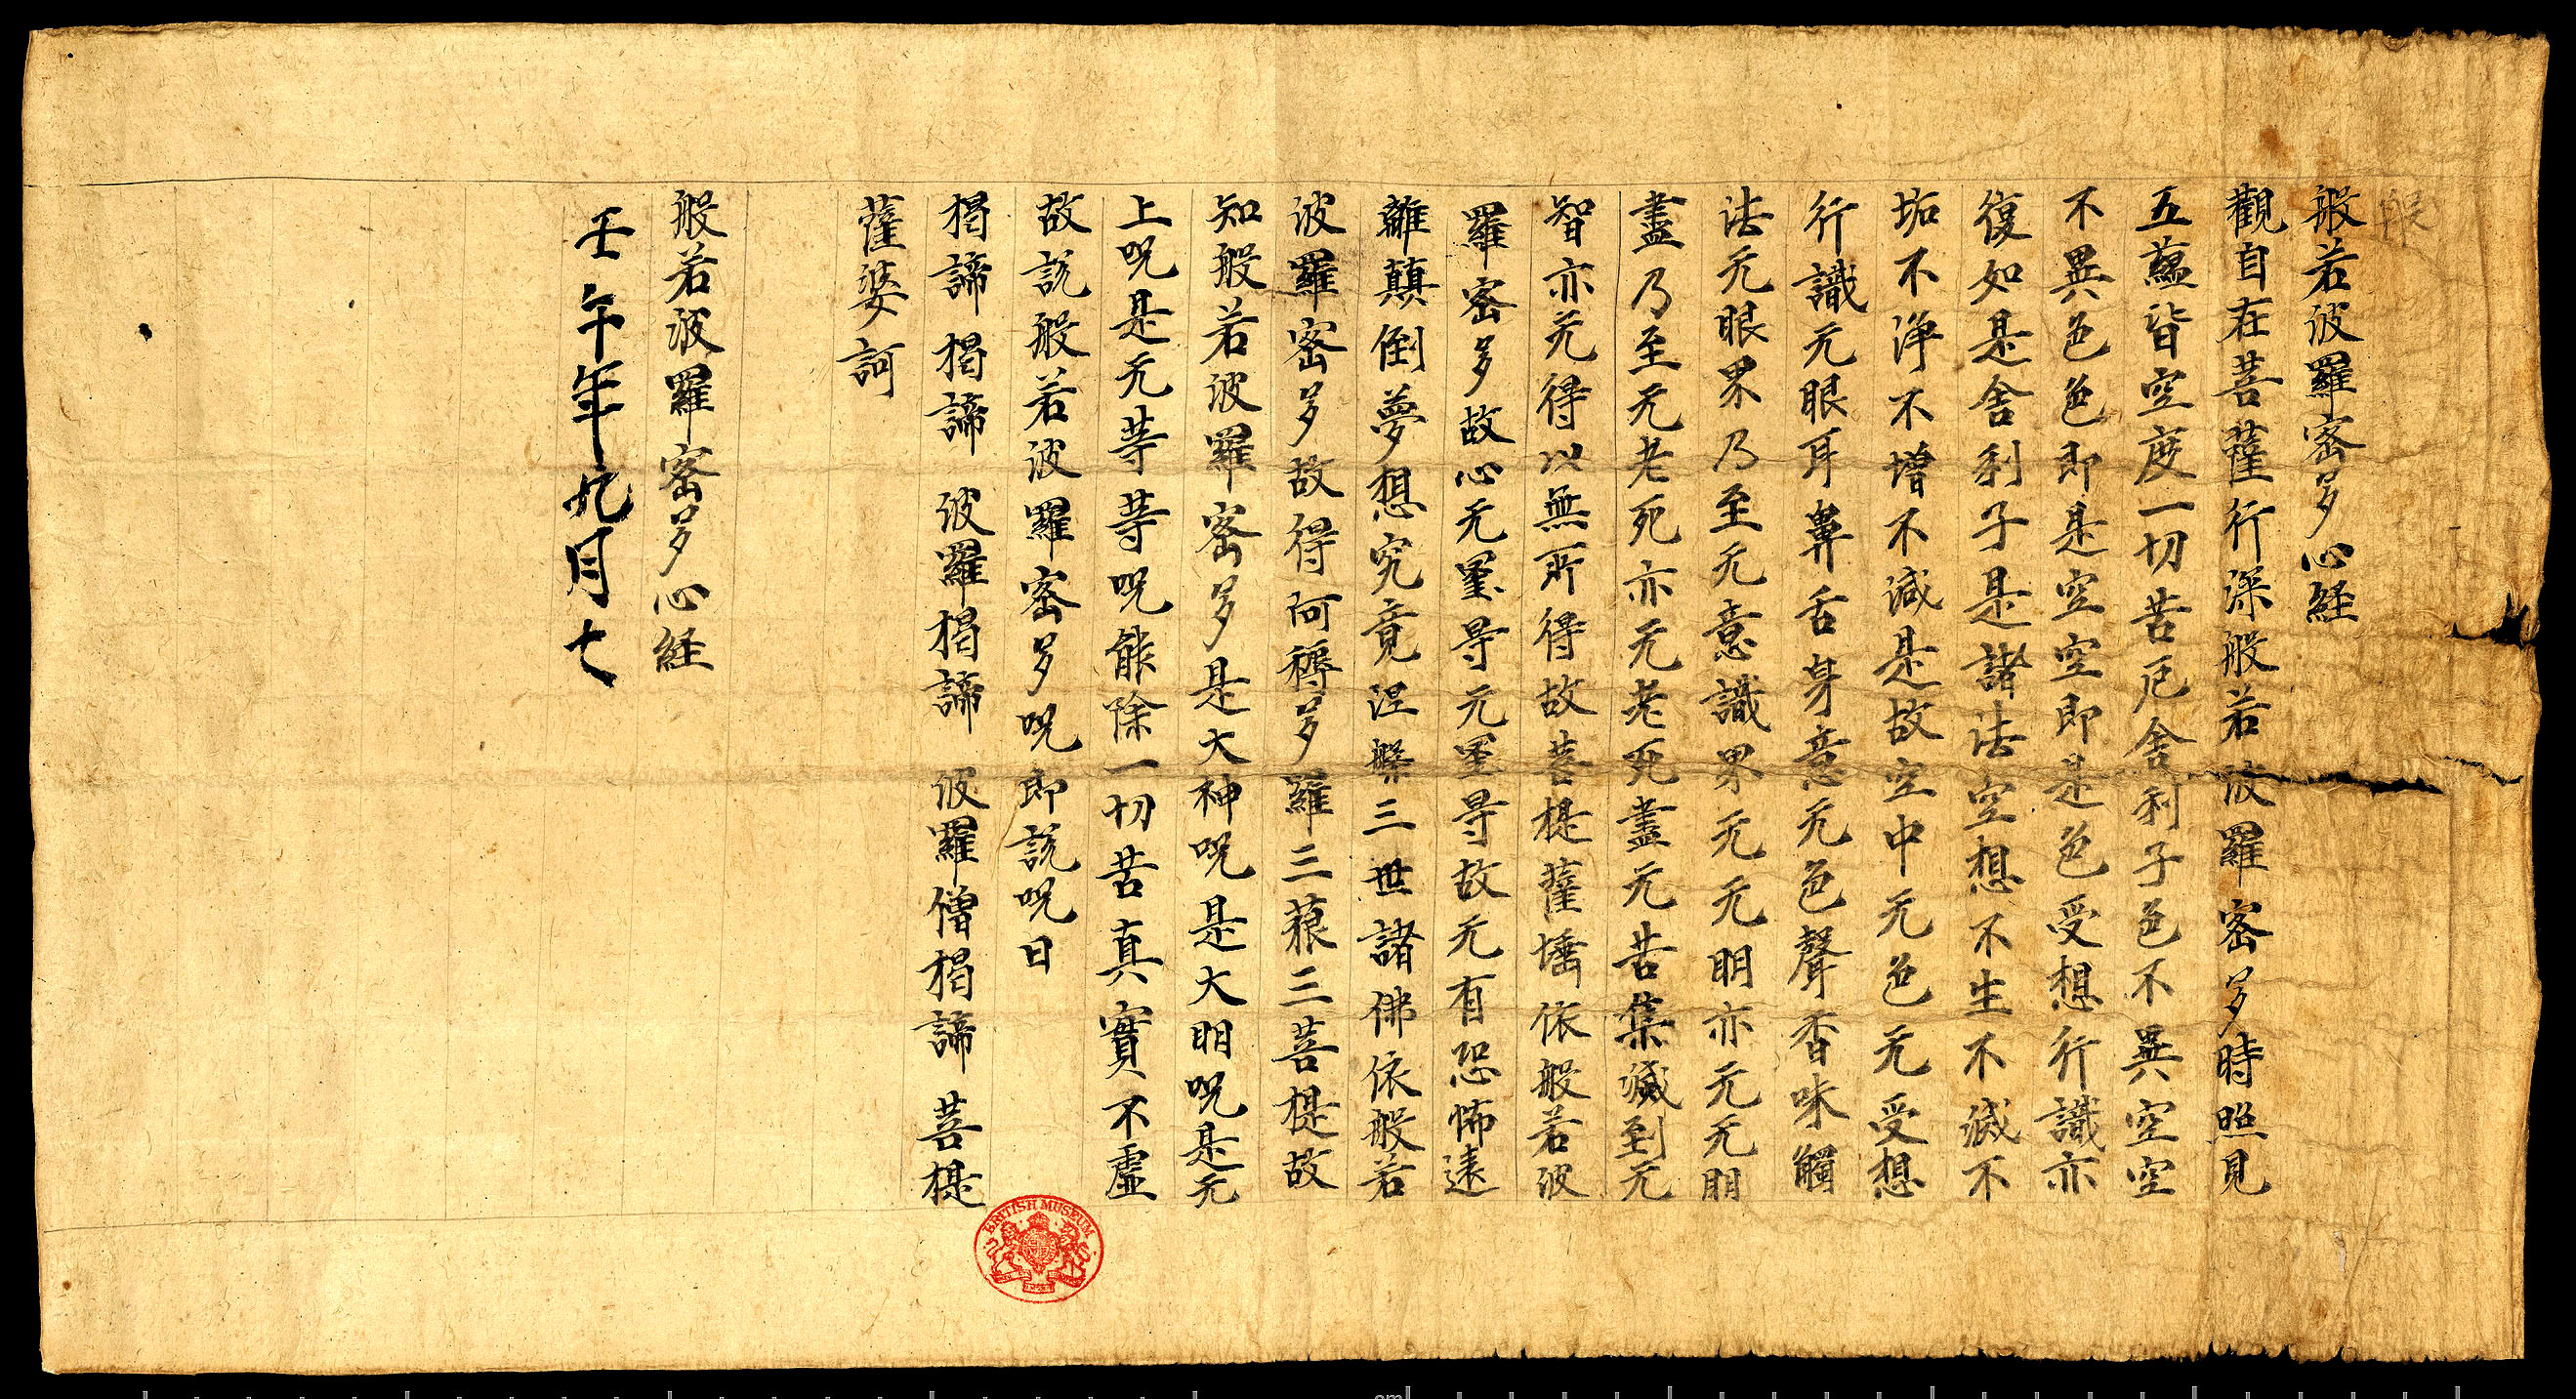 般
般若波羅蜜多心経
觀自在菩薩行深般若波羅蜜多時照見
五蘊皆空度一切苦厄舎利子色不異空空
不異色色即是空空即是色受想行識亦
復如是舎利子是諸法空想不生不滅不
垢不淨不增不減是故空中无色无受想
行識无眼耳鼻舌身意无色聲香味觸
法无眼界乃至无意識界无无明亦无无明
盡乃至无老死亦无老死盡无苦集滅到无
智亦无得以無所得故菩提薩埵依般若波
羅蜜多故心无罣㝵无罣㝵故无有恐怖遠
離顛倒夢想究竟涅槃三世諸佛依般若
波羅蜜多故得阿耨多羅三藐三菩提故
知般若波羅蜜多是大神呪是大明呪是无
上呪是无等等呪能除一切苦真實不虛
故說般若波羅蜜多呪即說呪曰
揭諦揭諦 波羅揭諦 波羅僧揭諦 菩提
薩婆訶
般若波羅蜜多心経
壬午年九月七
BRITISH MUSEUM
cm